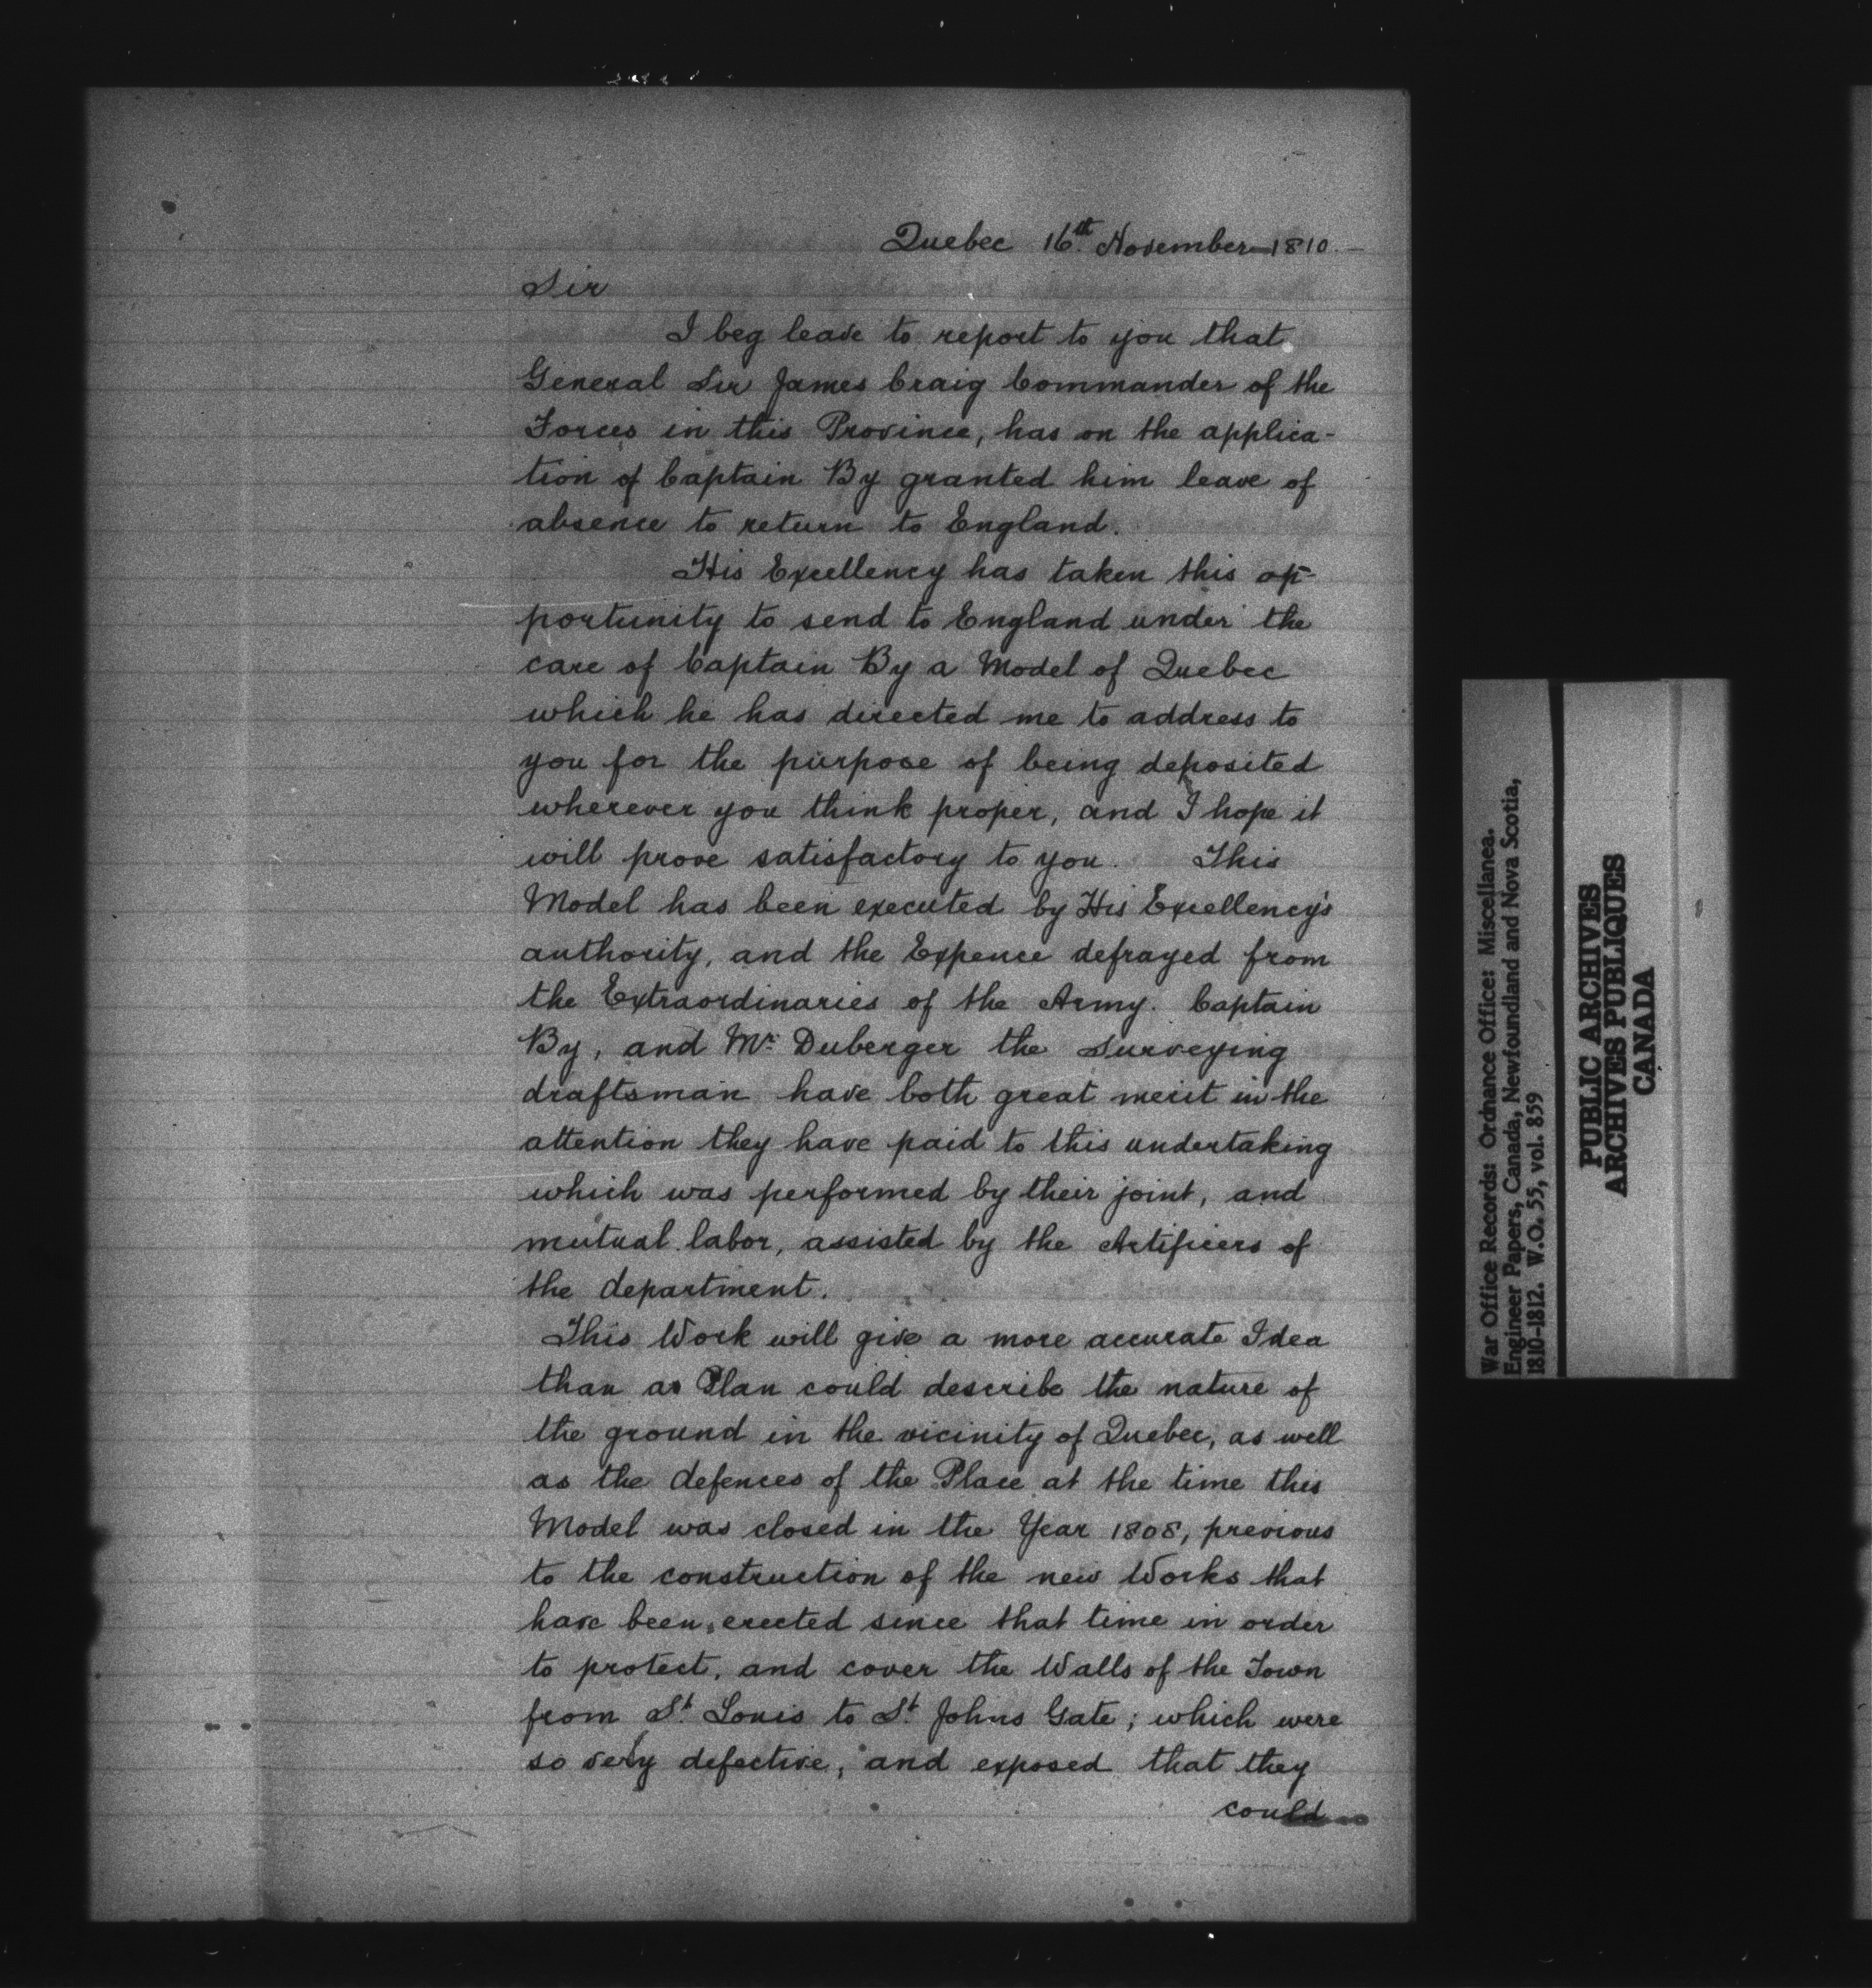 Quebec 16th November 1810.
Sir
I beg leave to report to you that
General Sir James Craig Commander of the
Forces in this Province, has on the applica-
tion of Captain By granted him leave of
absence to return to England.
His Excellency has taken this op-
portunity to send to England under the
care of Captain By a Model of Quebec
which he has directed me to address to
you for the purpose of being deposited
wherever you think proper, and I hope it
will prove satisfactory to you. This
Model has been executed by His Excellency's
authority, and the Expence defrayed from
the Extraordinaries of the Army. Captain
By, and Mr. Duberger the Surveying
draftsman have both great merit in the
attention they have paid to this undertaking
which was performed by their joint, and
mutual labor, assisted by the Artificers of
the department.
This Work will give a more accurate Idea
than a Plan could describe the nature of
the ground in the vicinity of Quebec, as well
as the defences of the Place at the time this
Model was closed in the Year 1808, previous
to the construction of the new Works that
have been erected since that time in order
to protect, and cover the Walls of the Town
from St. Louis to St. Johns Gate; which were
so very defective, and exposed that they
could
War Office Records: Ordnance Office: Miscellanea.
Engineer Papers, Canada, Newfoundland and Nova Scotia,
1810-1812. W.O. 55, vol. 859
PUBLIC ARCHIVES
ARCHIVES PUBLIQUES
CANADA